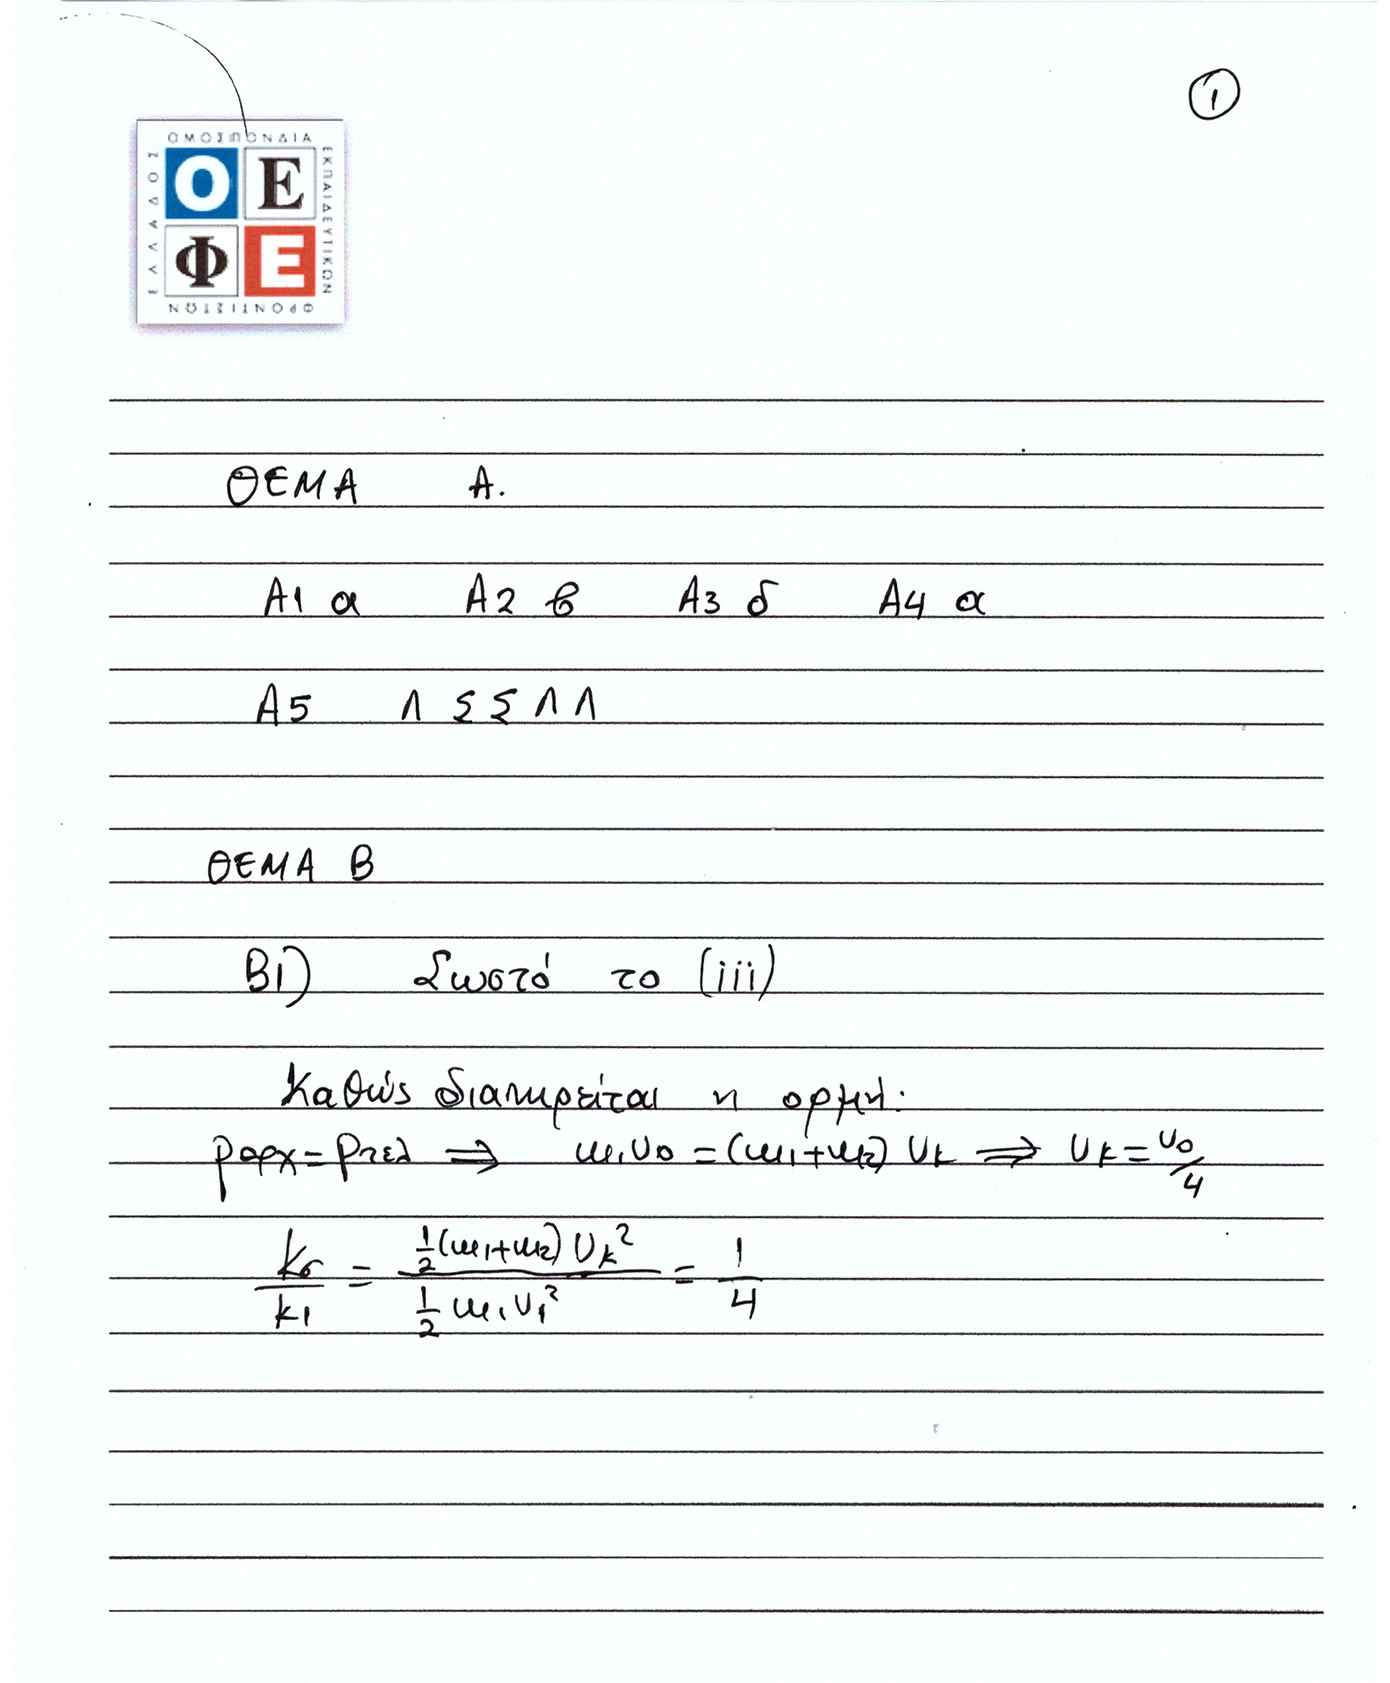 ①
ΟΜΟΣΠΟΝΔΙΑ
ΕΚΠΑΙΔΕΥΤΙΚΩΝ
ΦΡΟΝΤΙΣΤΩΝ
ΕΛΛΑΔΟΣ
Ο Ε
Φ Ε
ΘΕΜΑ Α.
Α1 α Α2 β Α3 δ Α4 α
Α5 Λ Σ Σ Λ Λ
ΘΕΜΑ Β
Β1) Σωστό το (iii)
Καθώς διατηρείται η ορμή:
Pαρχ = Pτελ ⇒ m₁υ₀ = (m₁+m₂) υκ ⇒ υκ = υ₀/4
Κσ/Κ1 = ½(m₁+m₂) υκ² / ½ m₁υ₁² = 1/4